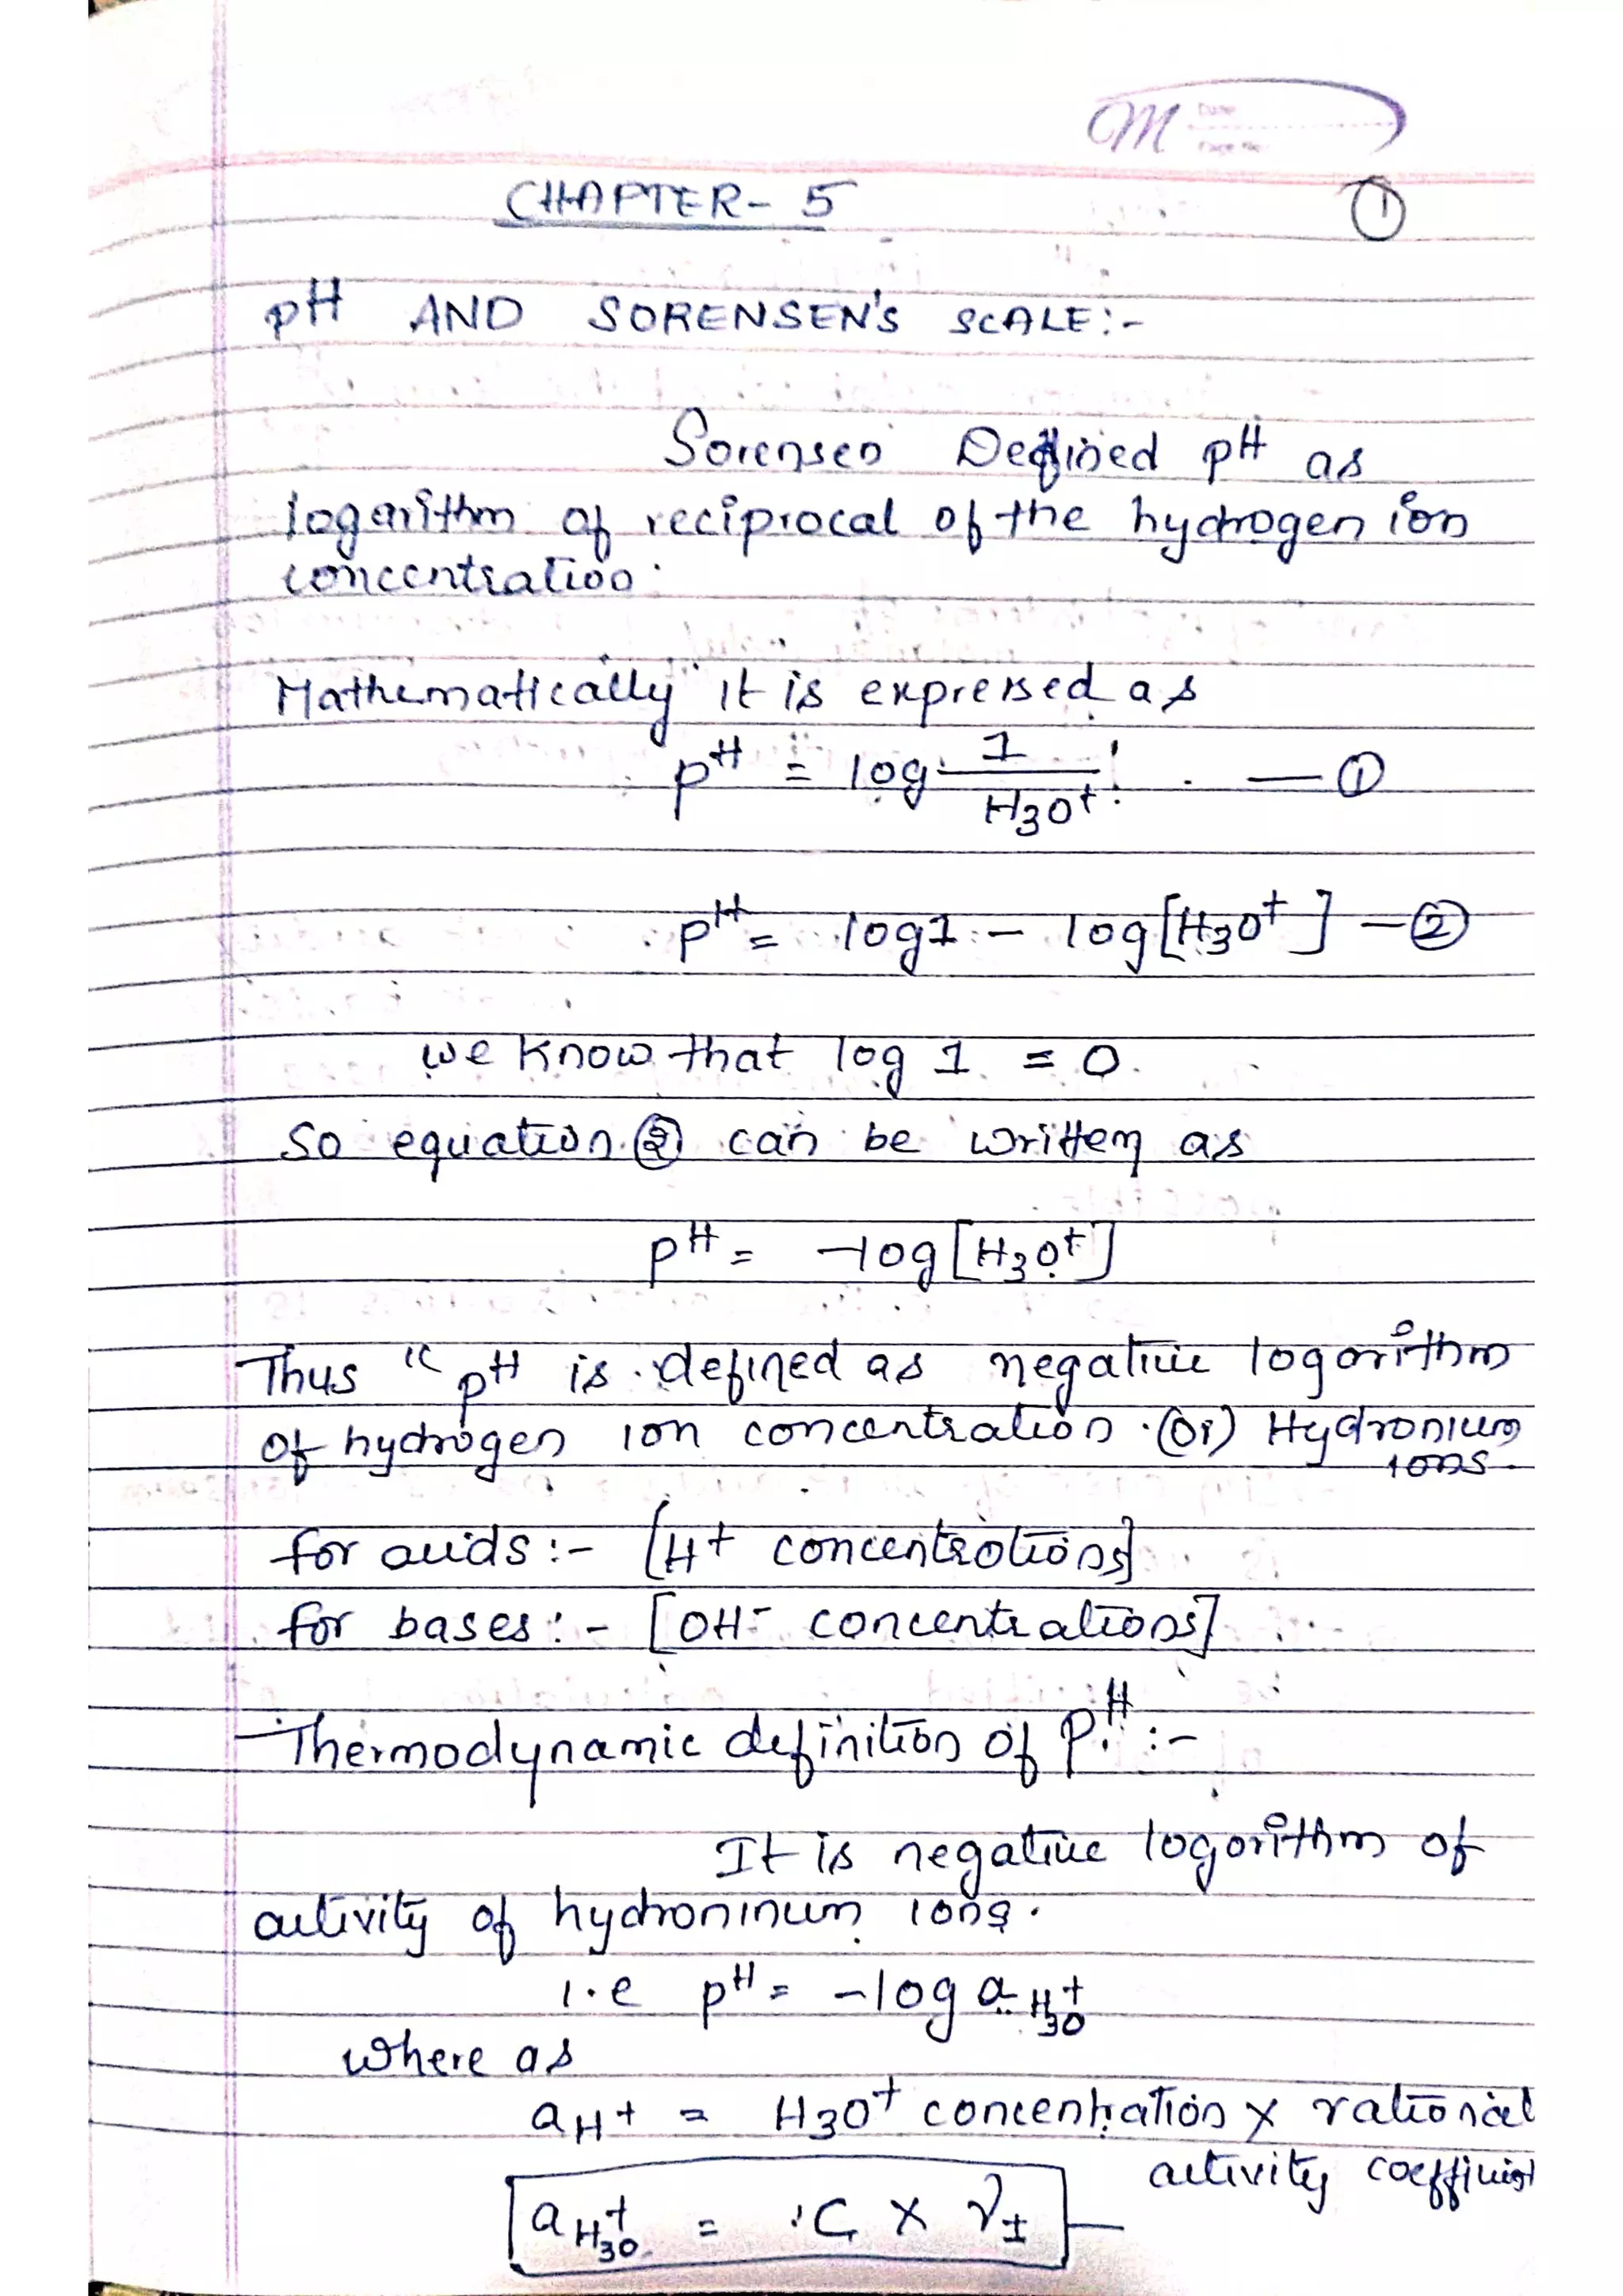 M
CHAPTER- 5
①
pH AND SORENSEN'S SCALE:-
Sorensen Defined pH as
logarithm of reciprocal of the hydrogen ion
concentration.
Mathematically it is expressed as
pH = log 1/H3O+ — ①
pH = log1 - log[H3O+] - ②
we know that log 1 = 0.
So equation ② can be written as
pH = -log[H3O+]
Thus " pH is defined as negative logorithm
of hydrogen ion concentration (or) Hydronium
ions.
for acids:- [H+ concentrations]
for bases:- [OH- concentrations]
Thermodynamic definition of PH :-
It is negative logorithm of
activity of hydroninum ions.
i.e pH = -log aH3O+
where as
aH+ = H3O+ concentration x rational
activity coefficient
aH3O+ = C x γ±